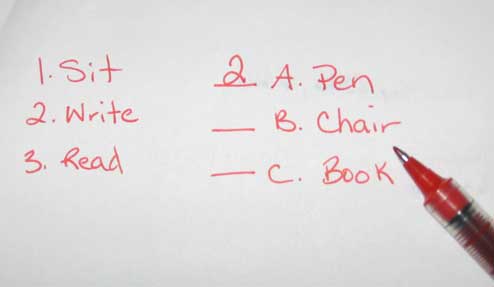 1. Sit 2 A. Pen
2. Write __ B. Chair
3. Read __ C. Book